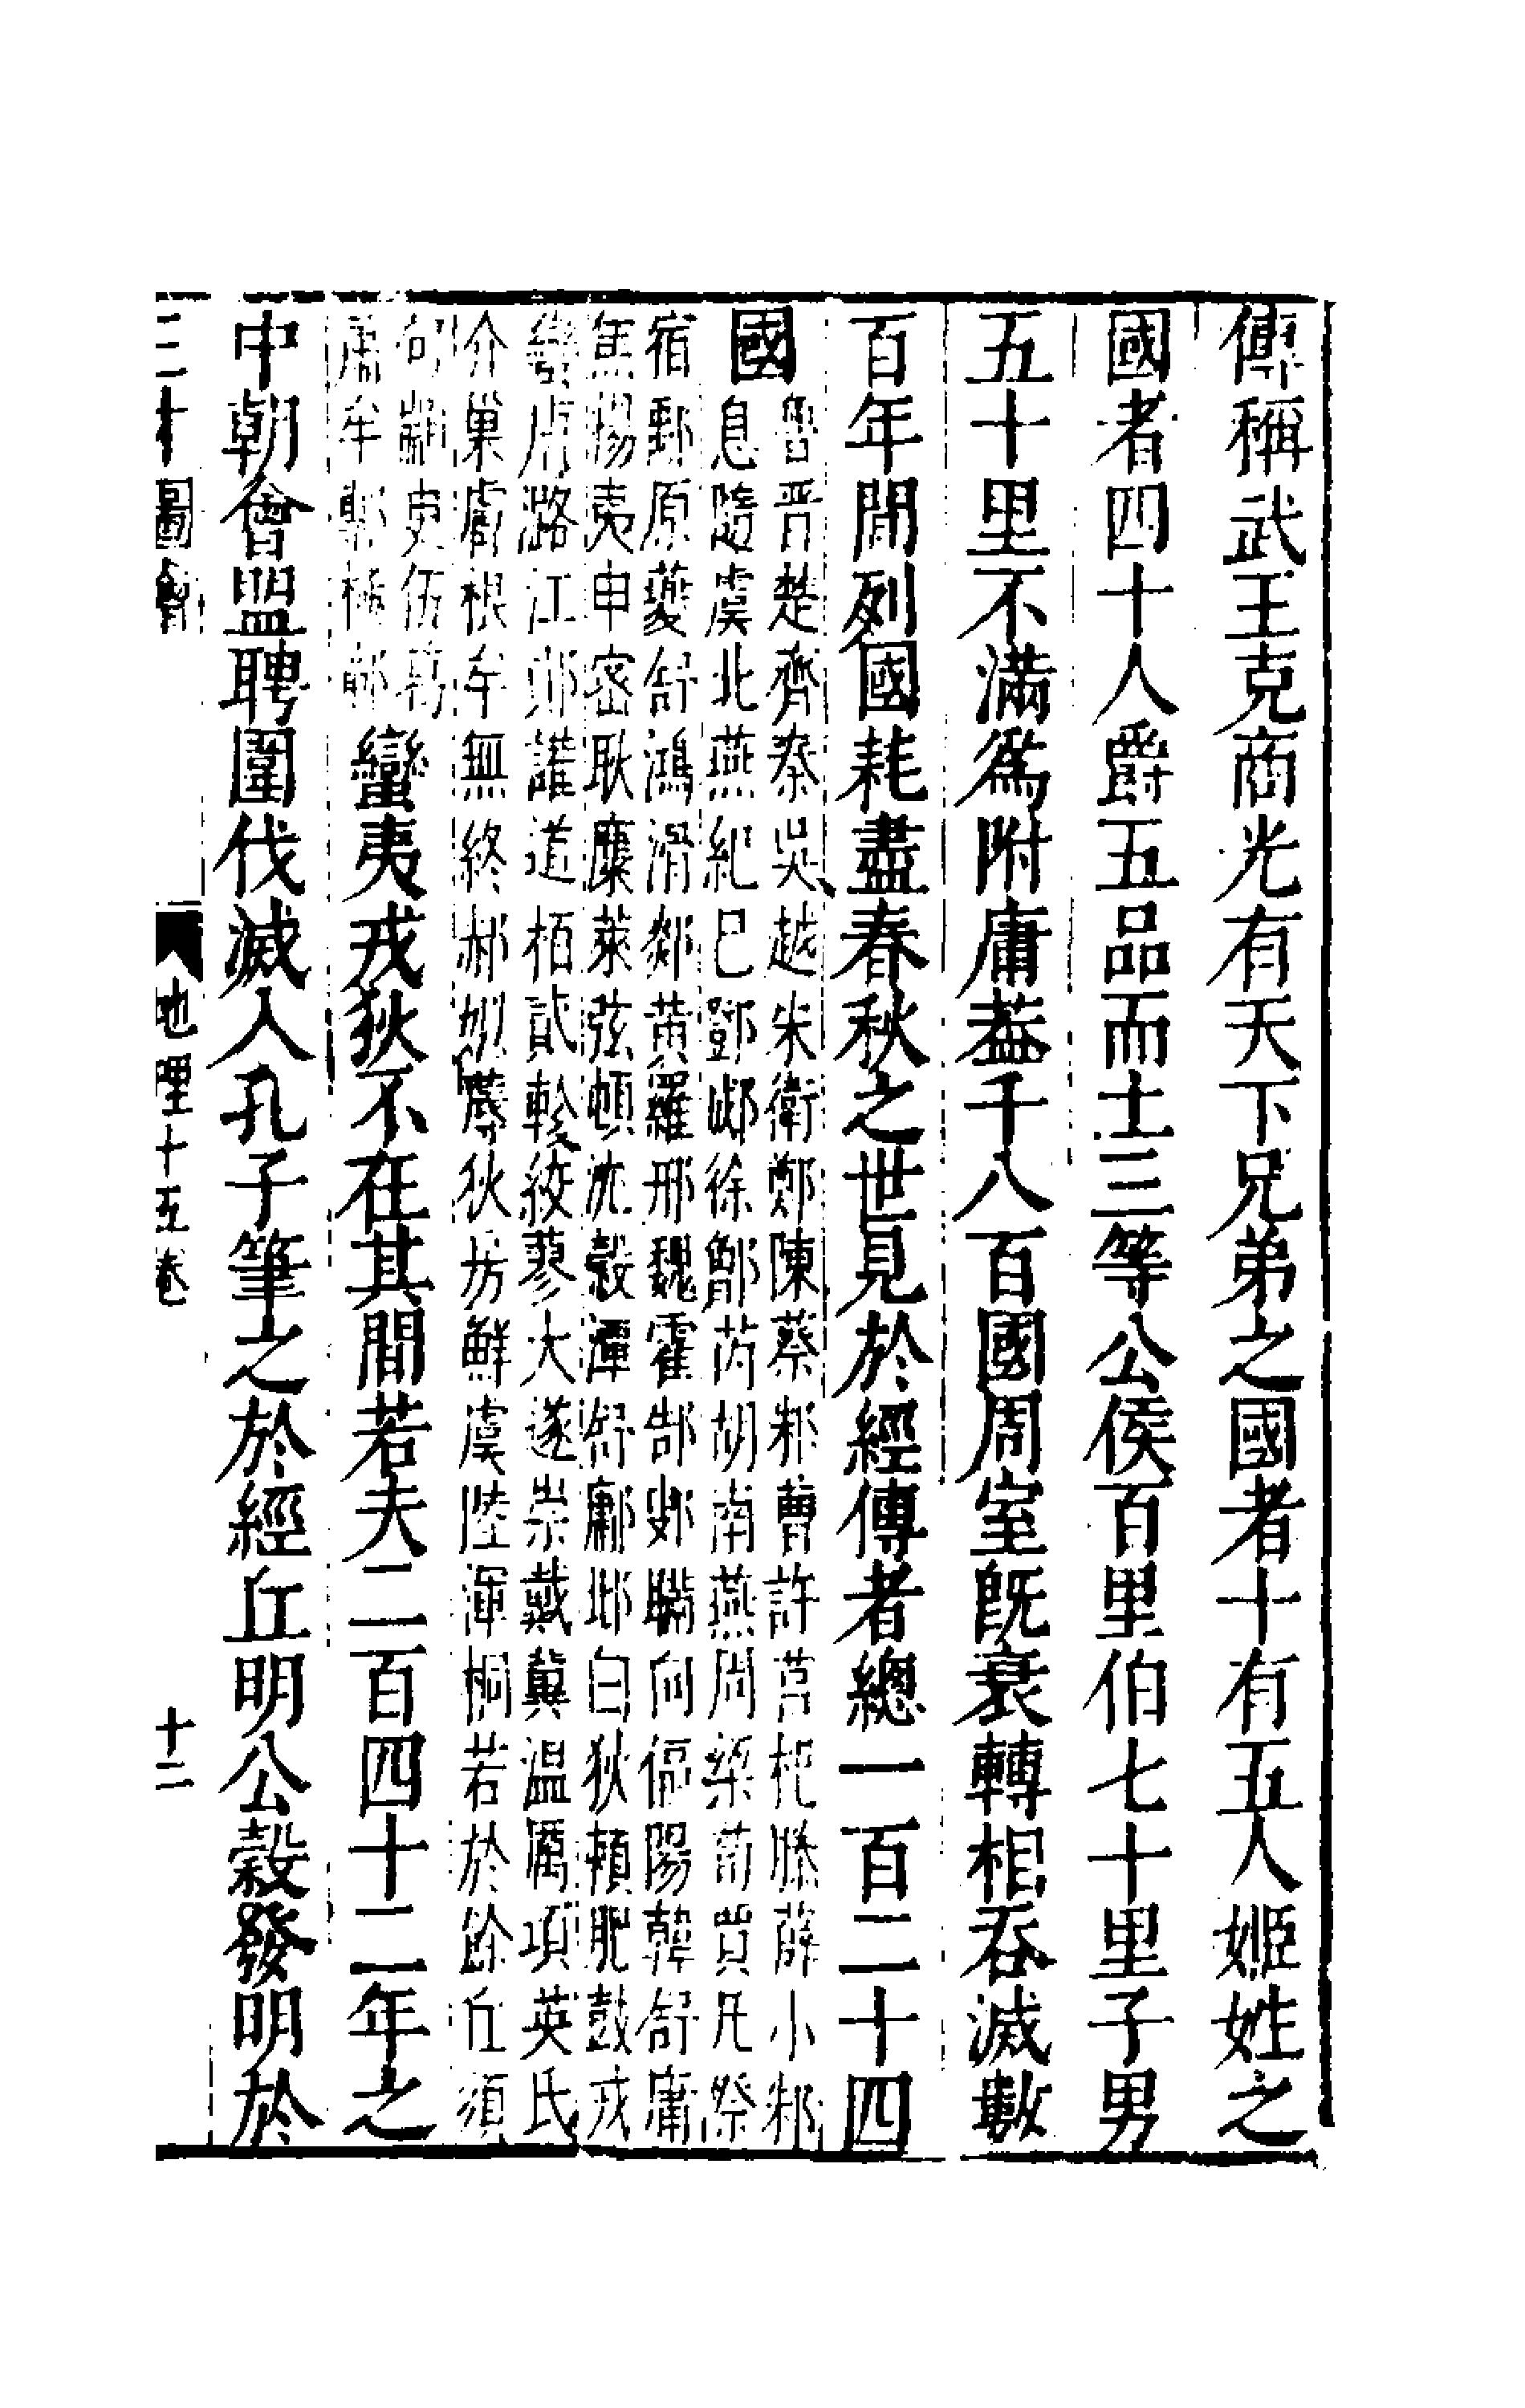 傳稱武王克商光有天下兄弟之國者十有五人姬姓之
國者四十人爵五品而土三等公侯百里伯七十里子男
五十里不滿爲附庸葢千八百國周室旣衰轉相吞滅數
百年間列國耗盡春秋之世見於經傳者總一百二十四
國
魯晉楚齊秦吳越宋衛鄭陳蔡邾曹許莒杞滕薛小邾
息隨虞北燕紀巴鄧郕徐鄫芮胡南燕周梁荀賈凡祭
宿鄅原夔舒鴻滑郯黃羅邢魏霍郜鄋瞞向偪陽韓舒庸
焦楊夷申密耿麋萊弦頓沈穀潭舒鄘邶白狄賴肥鼓戎
蠻唐潞江鄖讙道栢貳軫絞蓼六遂崇戴冀溫厲項英氏
介巢盧根牟無終郝姒蓐狄房鮮虞陸渾桐若於餘丘須
句顓臾伍葛
庸牟鄣極鄟
蠻夷戎狄不在其間若夫二百四十二年之
中朝會盟聘圍伐滅入孔子筆之於經丘明公穀發明於
三才圖會
地理十五卷
十二